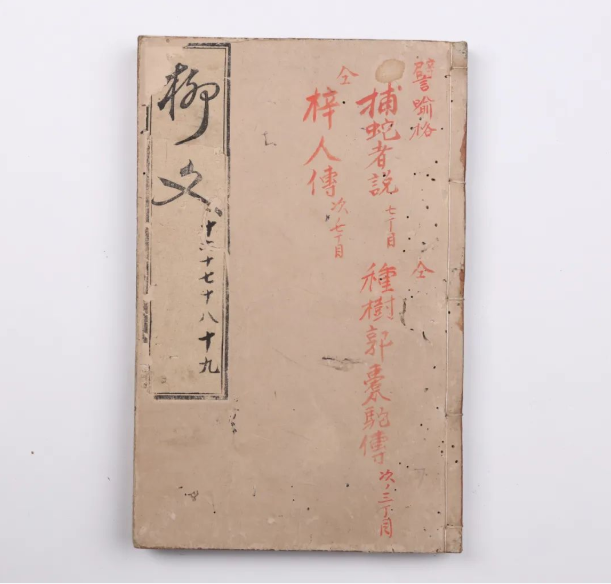 譬喩格
捕蛇者説 七丁目
仝
種樹郭橐駝傳 次ノ三丁目
仝
梓人傳 次ノ七丁目
柳文
十六十七十八十九